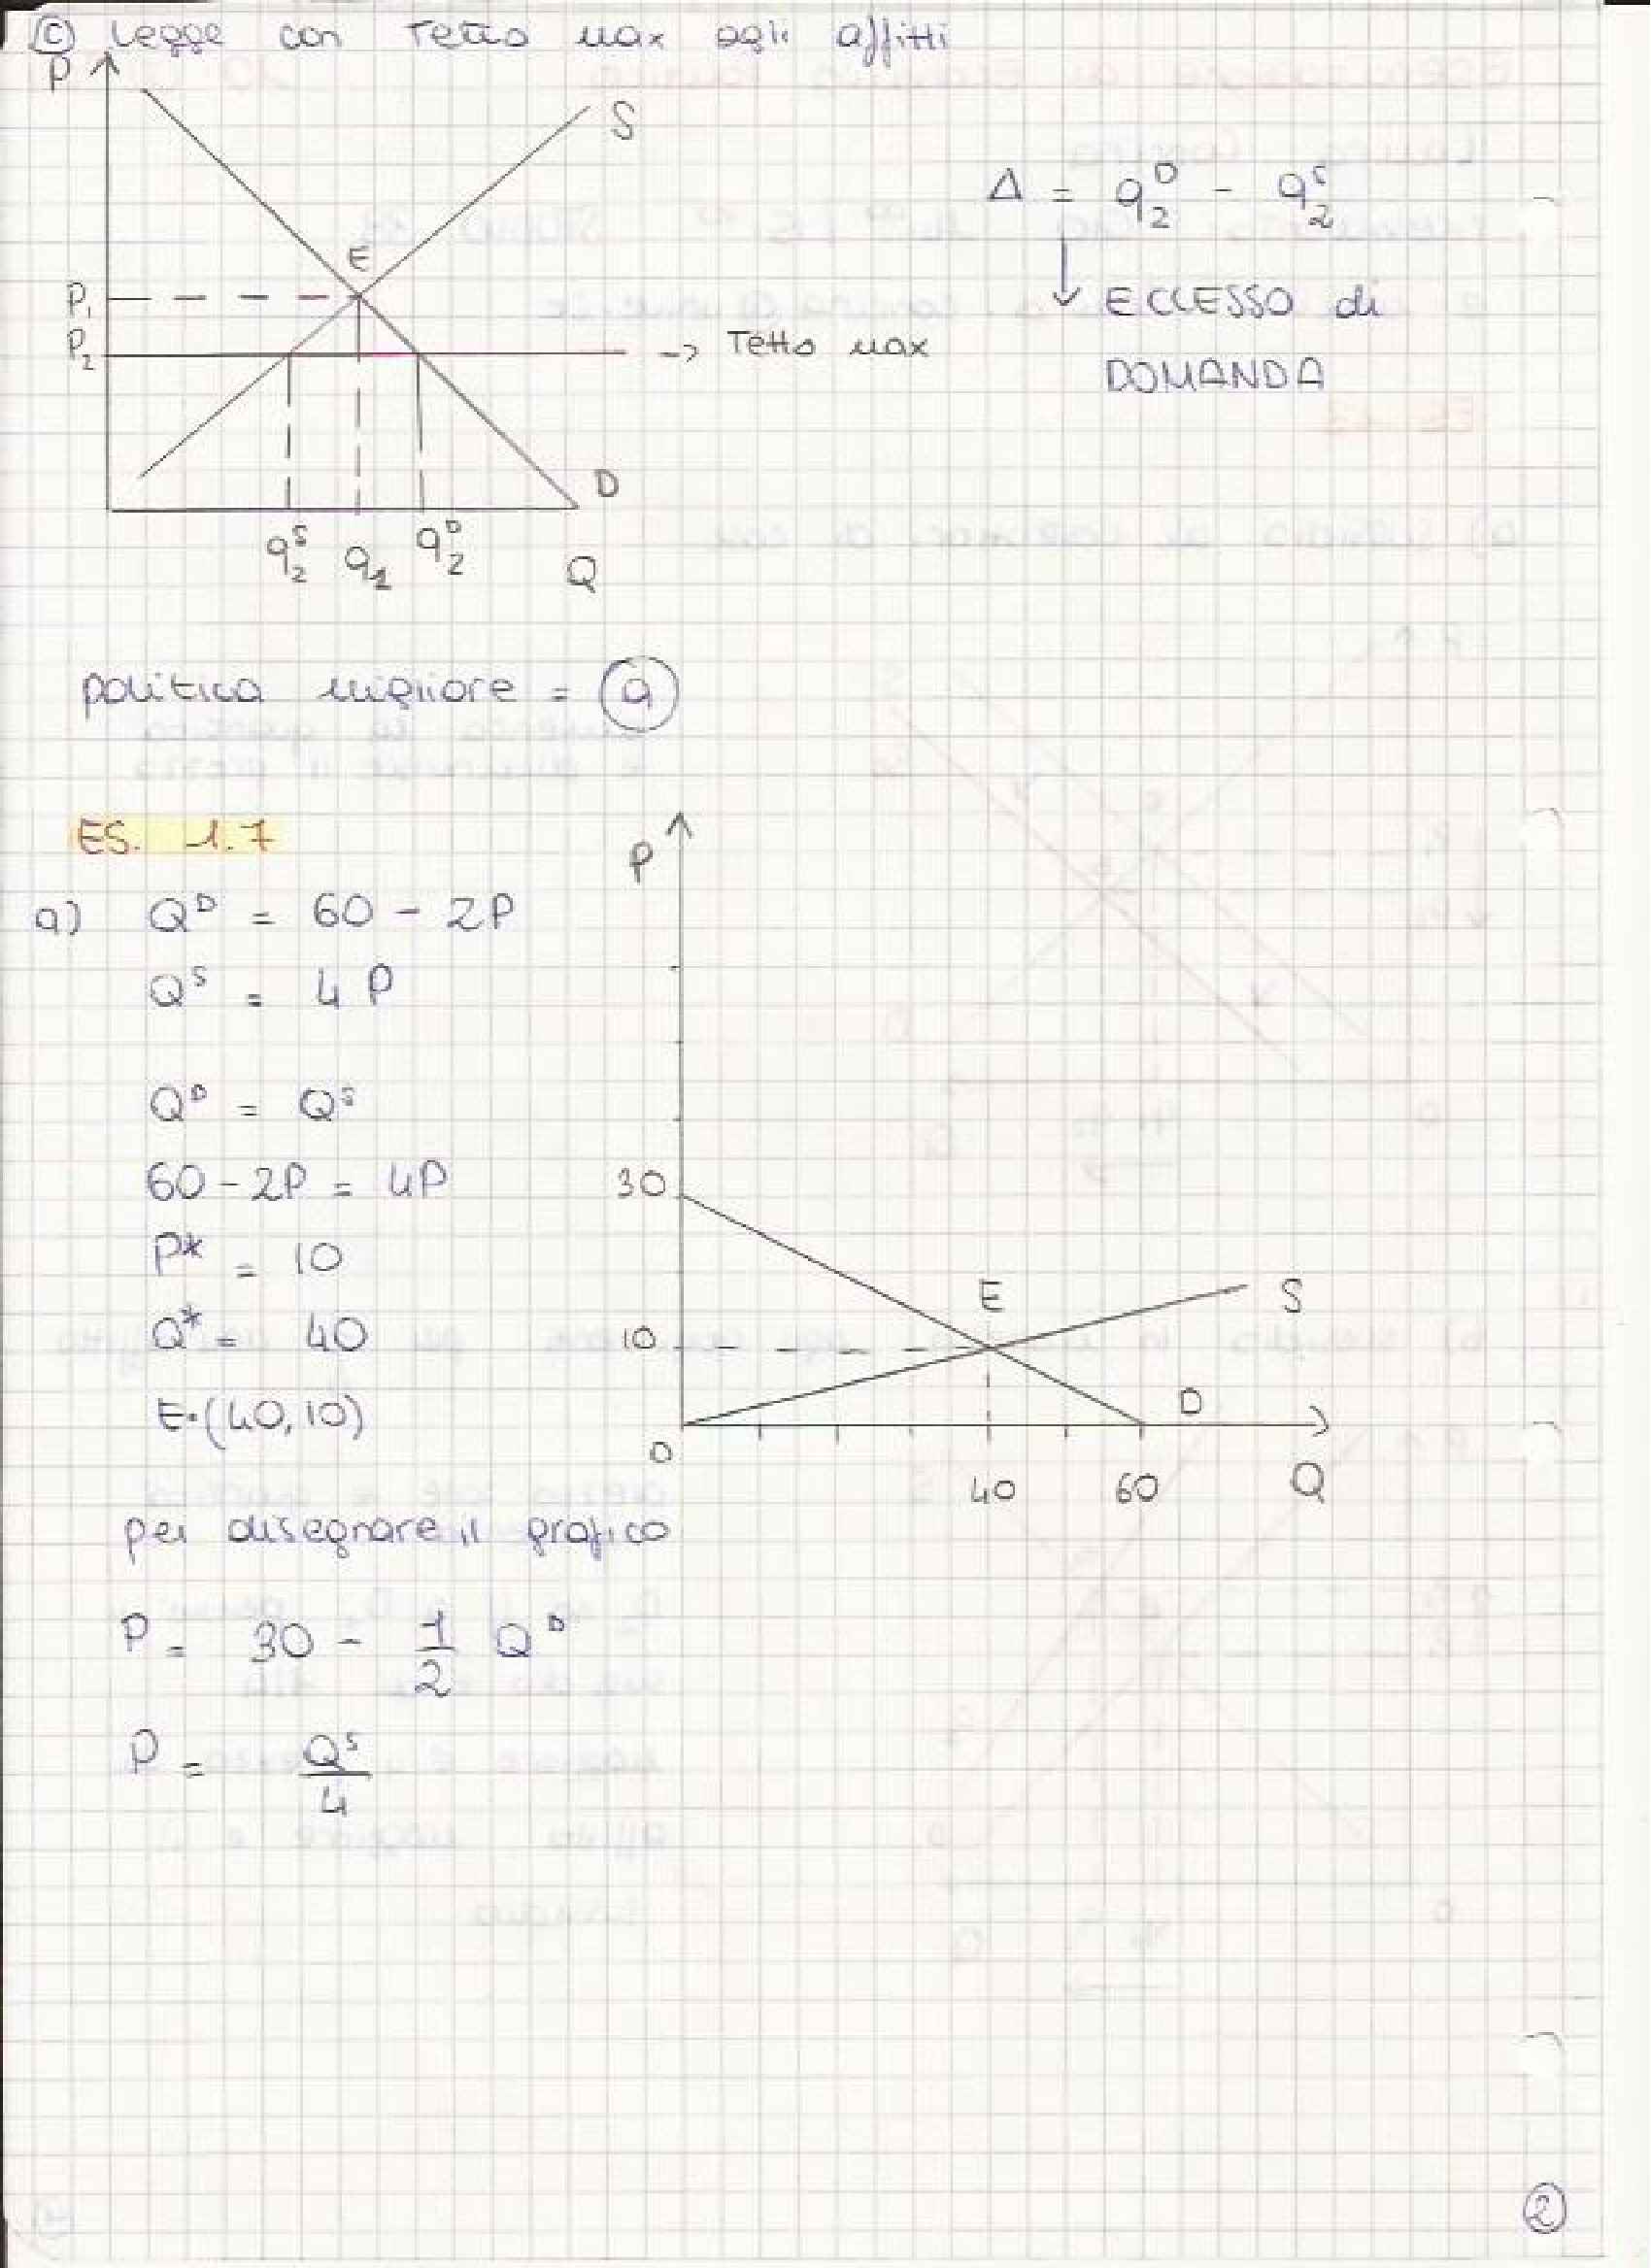 ⓒ legge con tetto max agli affitti
P
S
E
P₁
P₂
-> Tetto max
D
q₂ˢ q₁ q₂ᴰ
Q
Δ = q₂ᴰ - q₂ˢ
↓ ECCESSO di
DOMANDA
politica migliore = ⓐ
ES. 1.7
a) Qᴰ = 60 - 2P
Qˢ = 4P
Qᴰ = Qˢ
60 - 2P = 4P
P* = 10
Q* = 40
E·(40,10)
P
30
10
E
S
D
0
40 60
Q
per disegnare il grafico
P = 30 - 1/2 Qᴰ
P = Qˢ/4
②